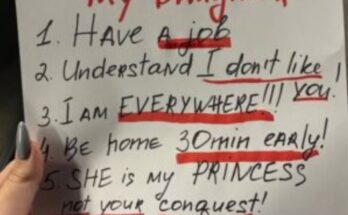 my
1. HAVE a job
2. Understand I don't like you!
3. I AM EVERYWHERE!!!
4. BE home 30min early!
5. SHE is my PRINCESS
not your conquest!